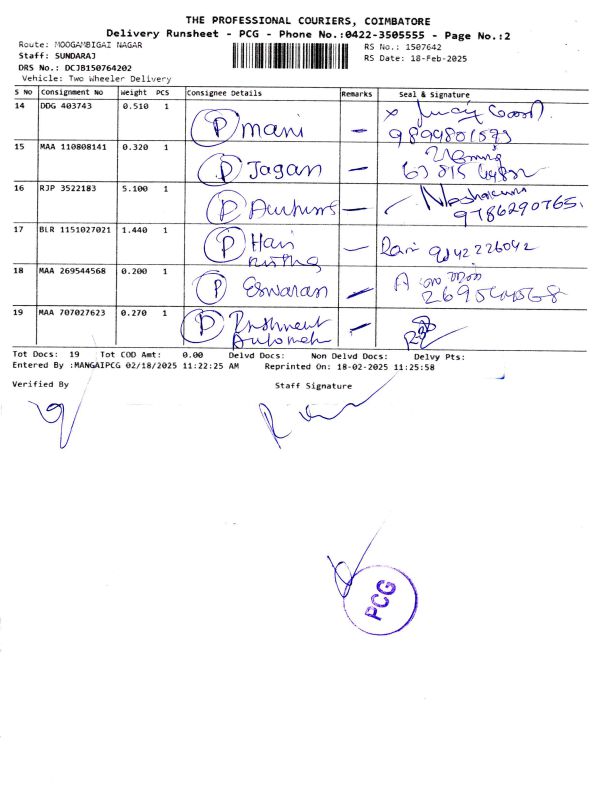 THE PROFESSIONAL COURIERS, COIMBATORE
Delivery Runsheet - PCG - Phone No.:0422-3505555 - Page No.:2
Route: MOOGAMBIGAI NAGAR
RS No.: 1507642
Staff: SUNDARAJ
RS Date: 18-Feb-2025
DRS No.: DCJB150764202
Vehicle: Two Wheeler Delivery
S No Consignment No Weight PCS Consignee Details Remarks Seal & Signature
14 DDG 403743 0.510 1 P mani - x
9899801573
15 MAA 110808141 0.320 1 P Jagan -
16 RJP 3522183 5.100 1 P -
9786290765
17 BLR 1151027021 1.440 1 P Hari - Ravi 9142226042
18 MAA 269544568 0.200 1 P Eswaran - A
269544568
19 MAA 707027623 0.270 1 P -
Tot Docs: 19 Tot COD Amt: 0.00 Delvd Docs: Non Delvd Docs: Delvy Pts:
Entered By :MANGAIPCG 02/18/2025 11:22:25 AM Reprinted On: 18-02-2025 11:25:58
Verified By Staff Signature
PCG